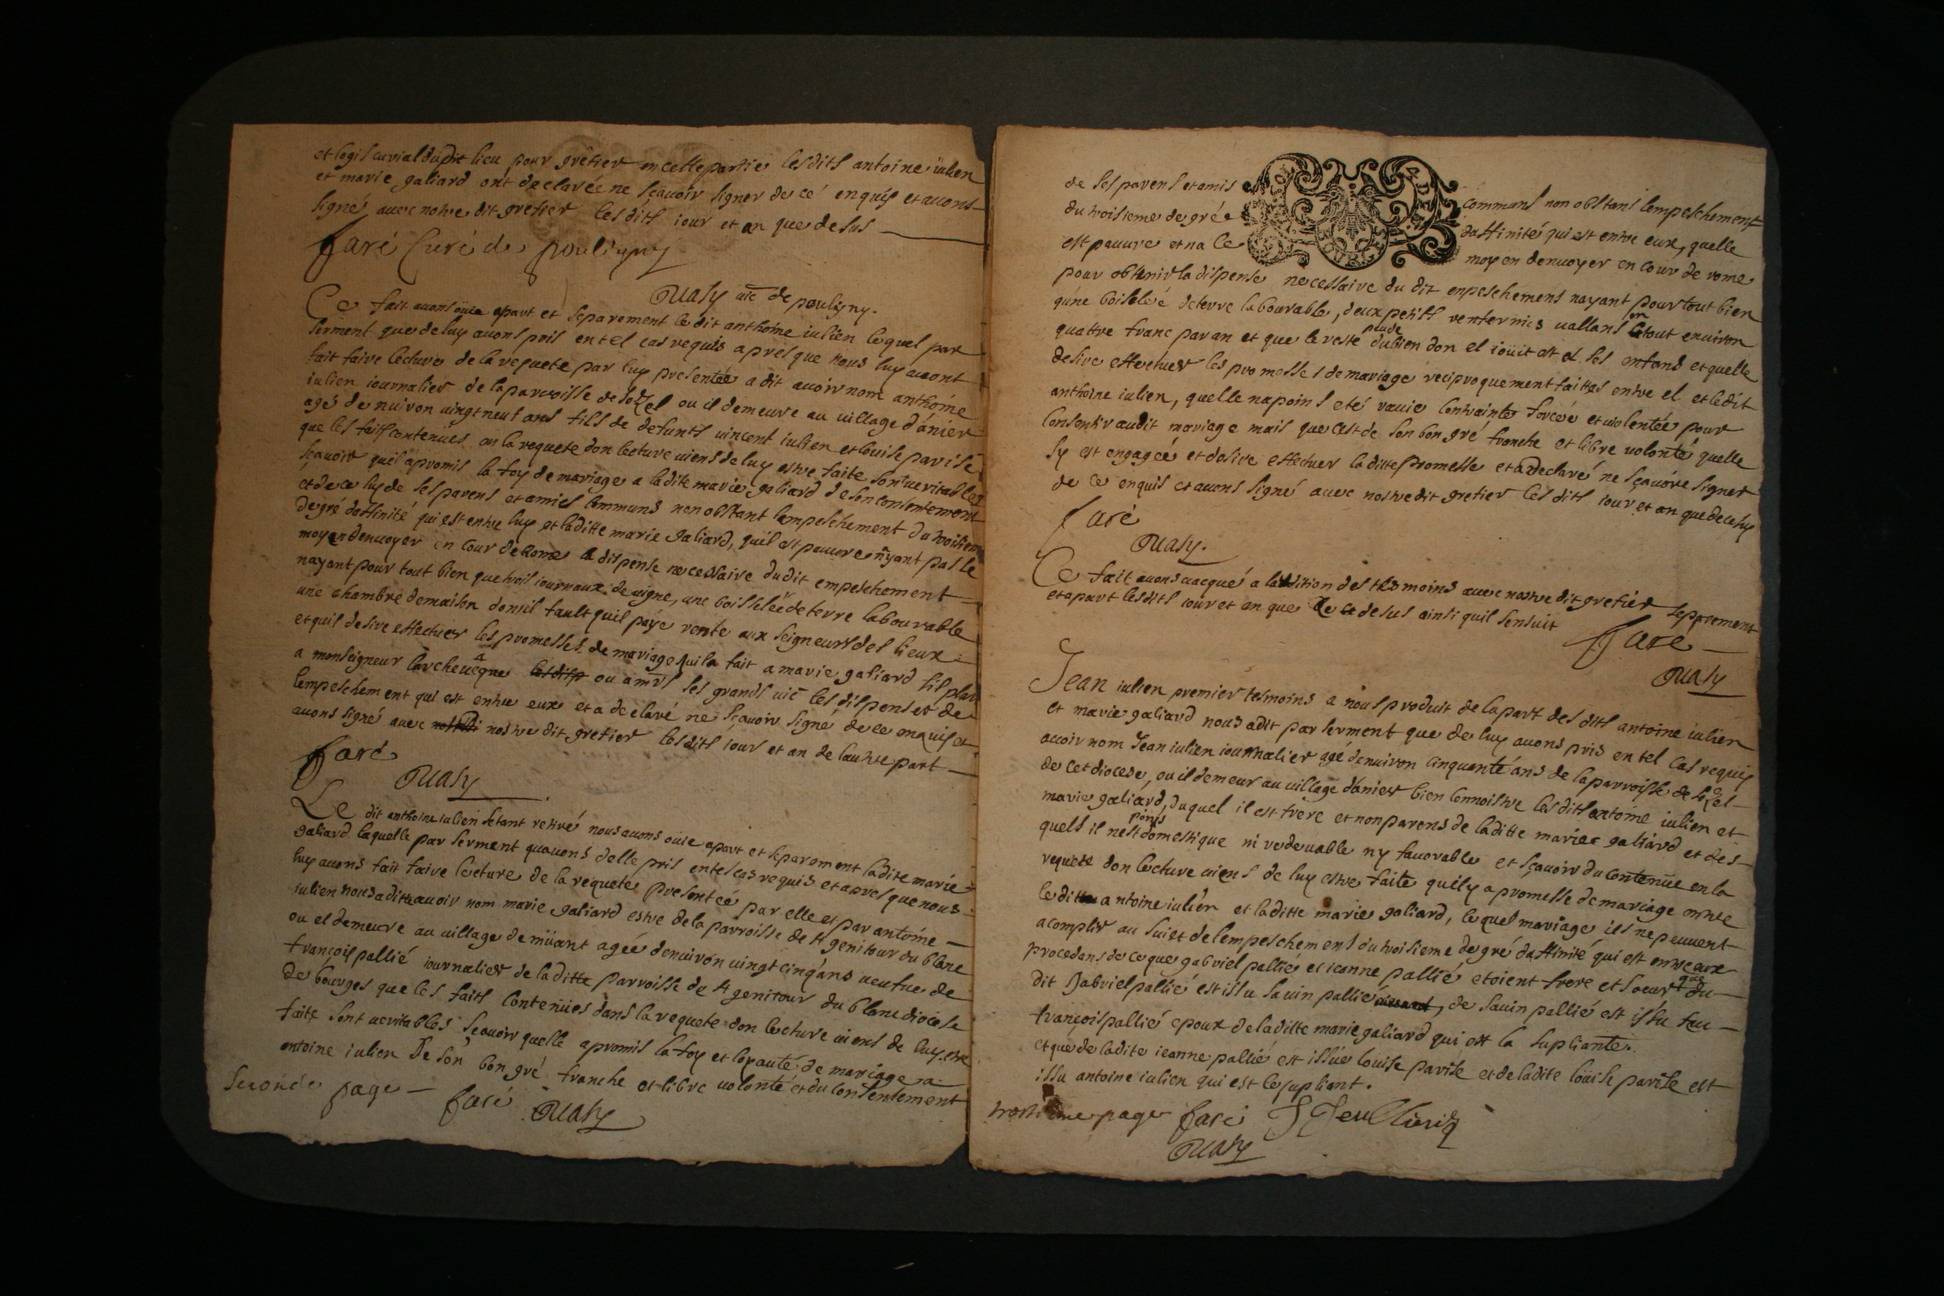 et logis curial du dit lieu pour grefier en cette partie lesdits antoine iulien
et marie galiard ont declarée ne sçavoir signer de ce enquis et avons
signé avec nostre dit grefier lesdits iour et an que desus
faré Curé de pouligny
Ruasy vic de pouligny.
Ce fait avons ouïe apart et separement le dit anthoine iulien lequel par
serment que de luy avons pris en tel cas requis apres que nous luy avont
fait faire lecture de la requete par luy presentée a dit avoir nom anthoine
iulien iournalier de la parroisse de ou il demeure au village d'anier
agé denviron vingt neuf ans fils de defunts vincent iulien et louise parise
que les faits contenues en la requete don lecture viens de luy estre faite sont veritables
sçavoir quil apromis la foy de mariage a ladite marie galiard de son contentement
et de ce luy de ses parens et amies communs non obstant lempeschement du troisieme
degré dafinité qui est entre luy et laditte marie galiard, quil est pauvre nyant pas le
moyen denvoyer en cour de Rome la dispense necessaire du dit empeschement
nayant pour tout bien que trois iournaux de vigne, une boisselée de terre labourable
une chambre de maison donsil fault quil paye rente aux seigneurs des lieux
et quil desire effectuer les promesses de mariage quila fait a marie galiard sil plait
a monseigneur larcheveque ou a mrs ses grands vic les dispenser de
lempeschement qui est entre eux et a declaré ne sçavoir signé de ce enquis et
avons signé avec nostre dit grefier lesdits iour et an de lautre part
faré
Ruasy
Le dit anthoine iulien setant retiré nous avons ouïe apart et separement ladite marie
galiard laquelle par serment quavons delle pris en tel cas requis et apres que nous
luy avons fait faire lecture de la requete presentée par elle et par antoine
iulien nous a dit avoir nom marie galiard estre de la parroisse de st genitour du blanc
ou el demeure au village de müant agée denviron vingt cinq ans veufue de
françois pallié iournalier de laditte parroisse de st genitour du blanc diocese
de bourges que les faits contenües dans la requete don lecture viens de luy estre
faite sont veritables sçavoir quelle apromis la foy et loyauté de mariage a
antoine iulien De son bon gré franche et libre volonté et du consentement
seconde page faré Ruasy
de ses parens et amis commans non obstans lempeschement
du troisieme degré dafinité qui est entre eux, quelle
est pauvre et na le moyen denvoyer en cour de rome
pour obtenir la dispense necessaire du dit enpeschemens nayant pour tout bien
qune boiselée de terre labourable, deux petits vallans en tout environ
quattre franc par an et que le reste peude dubien don el iouit est a ses enfans et quelle
desire effectuer les promesses de mariage reciproquement faites entre el et ledit
anthoine iulien, quelle na point eté ravie contrainte forcée et violentée pour
consentir audit mariage mais que cest de son bon gré franche et libre volonté quelle
sy est engagée et desire effectuer laditte promesse et a declaré ne sçavoire signer
de ce enquis et avons signé avec nostre dit grefier lesdits iour et an que decesus
faré
Ruasy.
Ce fait avons vacqués a laudition des tesmoins avec nostre dit grefier sepprement
et apart lesdits iour et an que de ce desus ainsi quil sensuit
faré
Ruasy
Jean iulien premier tesmoins a nous produit de la part des dits antoine iulien
et marie galiard nous a dit par serment que de luy avons pris en tel cas requis
avoir nom Jean iulien iournalier agé denviron cinquante ans de la parroisse de
de cet diocese, ou il demeur au village d'anier bien connoistre lesdits antoine iulien et
marie galiard, duquel il est frere et non parens de laditte marie galiard et des
quels il nest points domestique ni redevable ny favorable et sçavoir du contenüe en la
requete don lecture viens de luy estre faite quil y a promesse de mariage entre
ledit antoine iulien et laditte marie galiard, lequel mariage ils ne peuvent
acomplir au suiet de lempeschemens du troisieme degré dafinité qui est entre eux
procedans de ce que gabriel pallié et ieanne pallié etoient frere et soeur que du
dit Gabriel pallié est issu savin pallié, de savin pallié est issu feu
françois pallié epoux de laditte marie galiard qui est la supliante.
et que de ladite ieanne pallié est issüe louise parise et de ladite louise parise est
issu antoine iulien qui est le supliant.
troisieme page faré
Ruasy